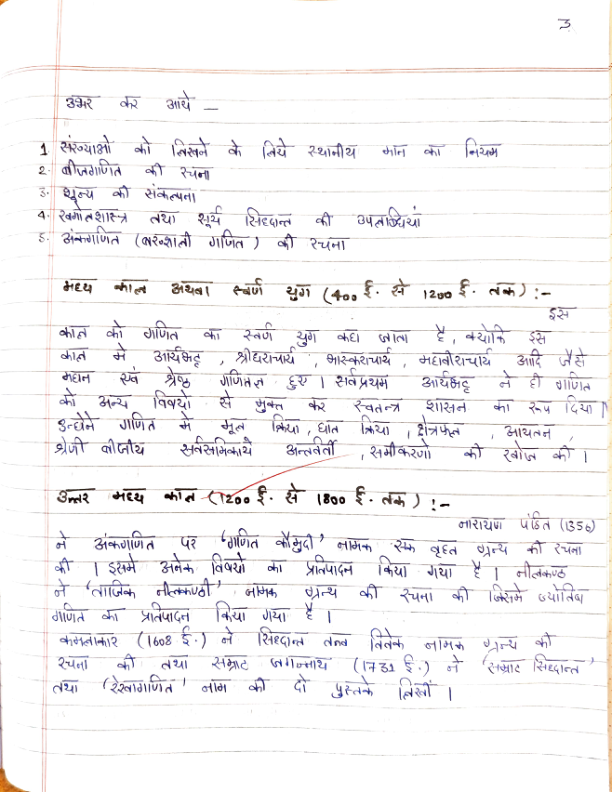 3
उभर कर आये —
1 संख्याओ को लिखने के लिये स्थानीय मान का नियम
2. बीजगणित की रचना
3. शून्य की संकल्पना
4. खगोलशास्त्र तथा सूर्य सिद्दान्त की उपलब्धियां
5. अंकगणित (बख्शाली गणित) की रचना
मध्य काल अथवा स्वर्ण युग (400 ई. से 1200 ई. तक) :-
इस
काल को गणित का स्वर्ण युग कहा जाता है, क्योकि इस
काल मे आर्यभट्ट, श्रीधराचार्य, भास्कराचार्य, महावीराचार्य आदि जैसे
महान एवं श्रेष्ठ गणितज्ञ हुए । सर्वप्रथम आर्यभट्ट ने ही गणित
को अन्य विषयो से मुक्त कर स्वतन्त्र शासन का रूप दिया |
उन्होने गणित मे मूल क्रिया, घात क्रिया, क्षेत्रफल, आयतन,
श्रेणी बीजीय सर्वसमिकाये अन्तर्वर्ती, समीकरणो की खोज की ।
उत्तर मध्य काल (1200 ई. से 1800 ई. तक) :-
नारायण पंडित (1356)
ने अंकगणित पर 'गणित कौमुदी' नामक एक वृहत ग्रन्थ की रचना
की । इसमे अनेक विषयो का प्रतिपादन किया गया है । नीलकण्ठ
ने 'ताजिक नीलकण्ठी' नामक ग्रन्थ की रचना की जिसमे ज्योतिष
गणित का प्रतिपादन किया गया है ।
कमलाकार (1608 ई.) ने सिद्दान्त तत्व विवेक नामक ग्रन्थ की
रचना की तथा सम्राट जगन्नाथ (1731 ई.) ने 'सम्राट सिद्दान्त'
तथा 'रेखागणित' नाम की दो पुस्तके लिखीं ।